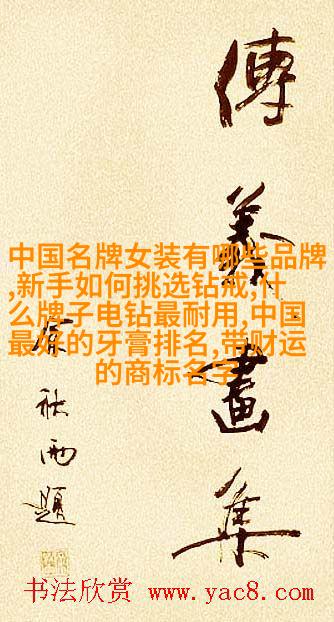 畫集
題
中国名牌女装有哪些品牌
,新手如何挑选钻戒,什
么牌子电钻最耐用,中国
最好的牙膏排名,带财运
的商标名字
书法欣赏 www.yac8.com